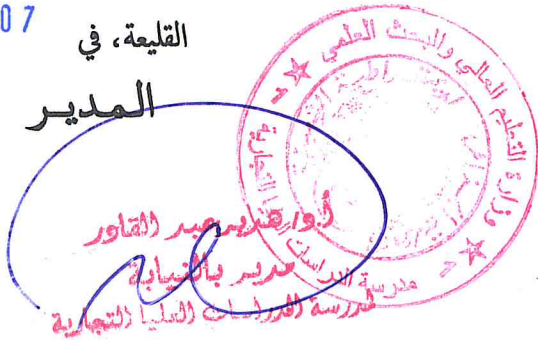 07
القليعة، في
المديـر
وزارة التعليم العالي والبحث العلمي
مدرسة الدراسات العليا التجارية
عبد القادر
مدير بالنيابة
لمدرسة الدراسات العليا التجارية